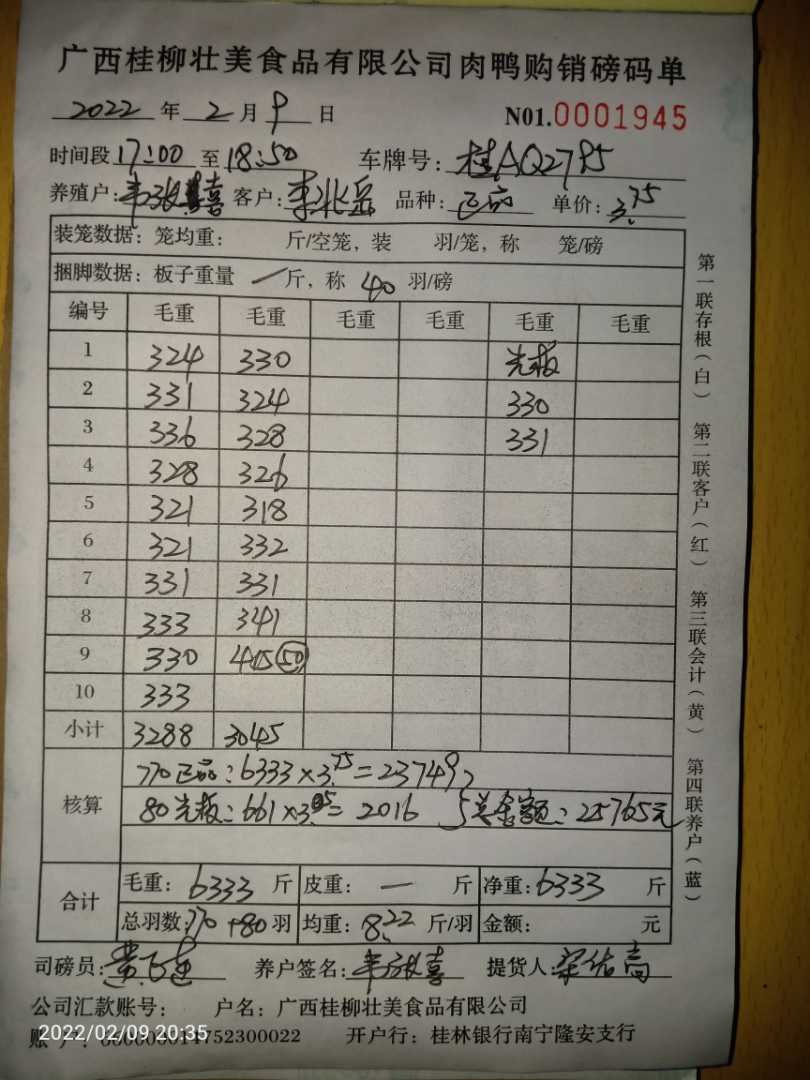 广西桂柳壮美食品有限公司肉鸭购销磅码单
2022 年 2 月 9 日 N01.0001945
时间段 17:00 至 18:50 车牌号: 桂AQ2795
养殖户: 韦 喜 客户: 李兆岳 品种: 正品 单价: 3.75
装笼数据: 笼均重: 斤/空笼, 装 羽/笼, 称 笼/磅
捆脚数据: 板子重量 一 斤, 称 40 羽/磅
编号 毛重 毛重 毛重 毛重 毛重 毛重
1 324 330 光板
2 331 324 330
3 336 328 331
4 328 326
5 321 318
6 321 332
7 331 331
8 333 341
9 330 415 50
10 333
小计 3288 3045
核算
770正品: 6333×3.75=23749
80光板: 661×3.05= 2016 总金额: 25765元
合计
毛重: 6333 斤 皮重: — 斤 净重: 6333 斤
总羽数: 770+80 羽 均重: 8.22 斤/羽 金额: 元
司磅员: 黄 养户签名: 韦 喜 提货人: 高
公司汇款账号: 户名: 广西桂柳壮美食品有限公司
账 户: 000000014752300022 开户行: 桂林银行南宁隆安支行
2022/02/09 20:35
第一联存根(白) 第二联客户(红) 第三联会计(黄) 第四联养户(蓝)